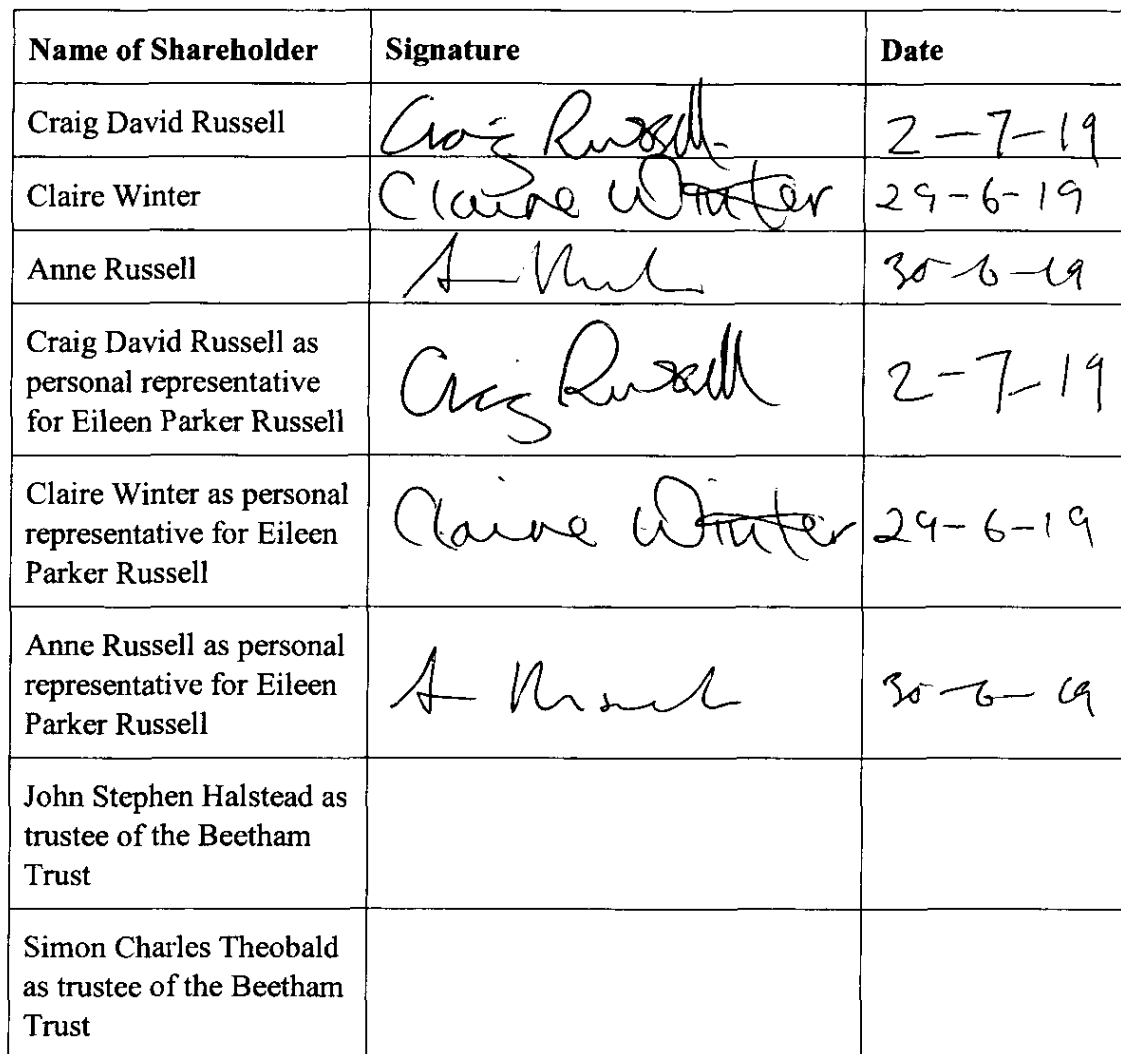 Name of Shareholder Signature Date
Craig David Russell Craig Russell 2-7-19
Claire Winter Claire Winter 29-6-19
Anne Russell 30-6-19
Craig David Russell as
personal representative
for Eileen Parker Russell Craig Russell 2-7-19
Claire Winter as personal
representative for Eileen
Parker Russell Claire Winter 29-6-19
Anne Russell as personal
representative for Eileen
Parker Russell 30-6-19
John Stephen Halstead as
trustee of the Beetham
Trust
Simon Charles Theobald
as trustee of the Beetham
Trust